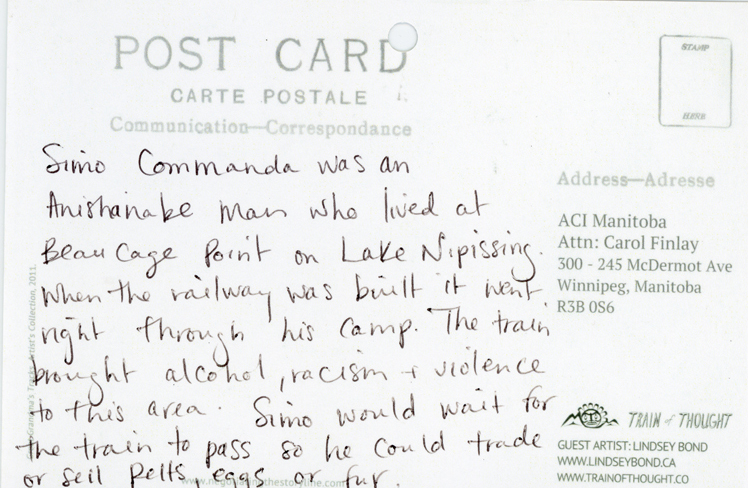 POST CARD
CARTE POSTALE
Communication—Correspondance
STAMP
HERE
Simo Commanda was an
Anishanabe man who lived at
Beaucage Point on Lake Nipissing.
When the railway was built it went
right through his camp. The train
brought alcohol, racism + violence
to this area. Simo would wait for
the train to pass so he could trade
or sell pelts, eggs or fur.
Address—Adresse
ACI Manitoba
Attn: Carol Finlay
300 - 245 McDermot Ave
Winnipeg, Manitoba
R3B 0S6
TRAIN of THOUGHT
GUEST ARTIST: LINDSEY BOND
WWW.LINDSEYBOND.CA
WWW.TRAINOFTHOUGHT.CA
Artist's Collection, 2011.